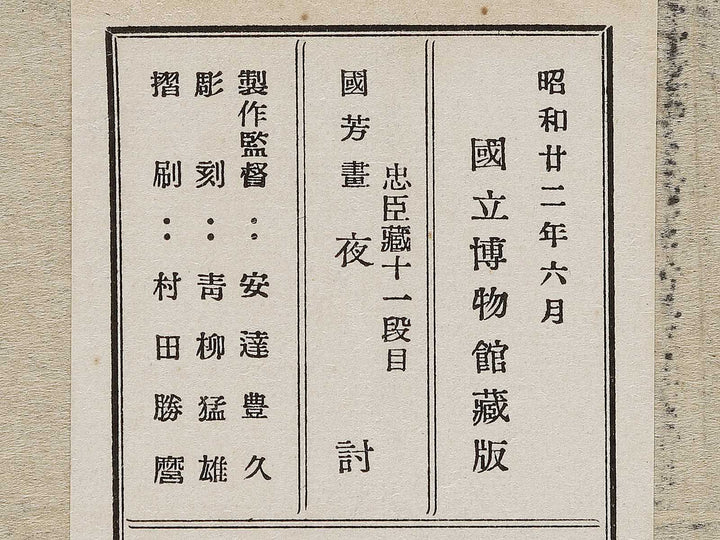 昭和廿二年六月
國立博物館藏版
忠臣藏十一段目
國芳畫 夜討
製作監督：安達豊久
彫刻：靑柳猛雄
摺刷：村田勝麿